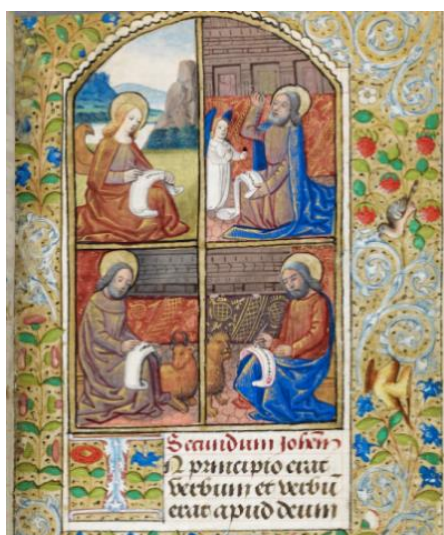 Secundum Johem̄
In principio erat
verbum et verbū
erat apud deum